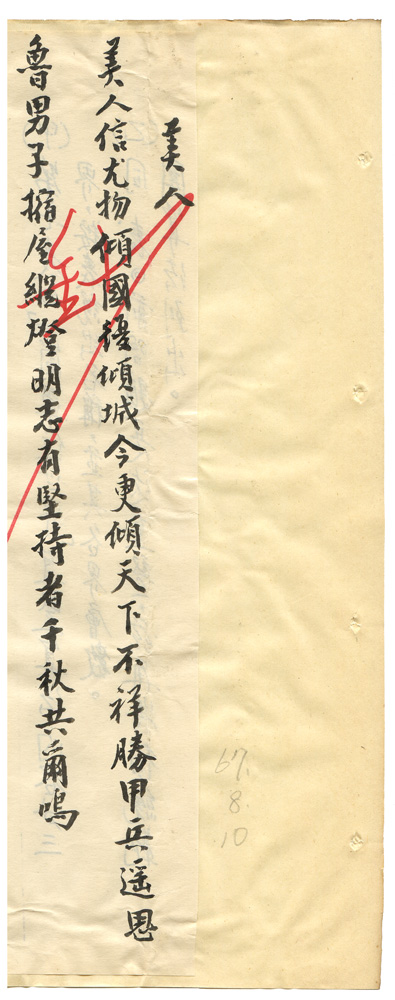 67.
8.
10
美人
美人信尤物傾國復傾城今更傾天下不祥勝甲兵遥思
魯男子摍屋繼燈明志有堅持者千秋共爾鳴